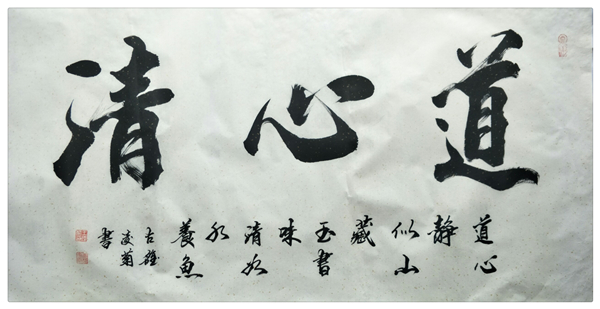 道心清
道心
静
似山
藏
玉書
味
清如
水
養魚
古
凌菊
書